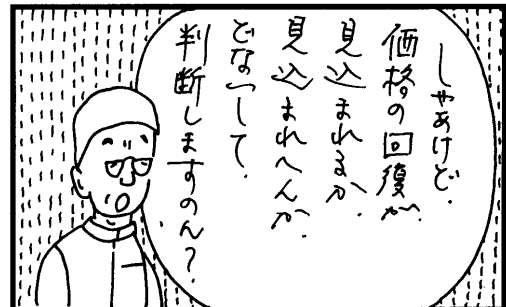 しゃあけど.
価格の回復が.
見込まれるか.
見込まれへんか.
どないして.
判断しますのん?